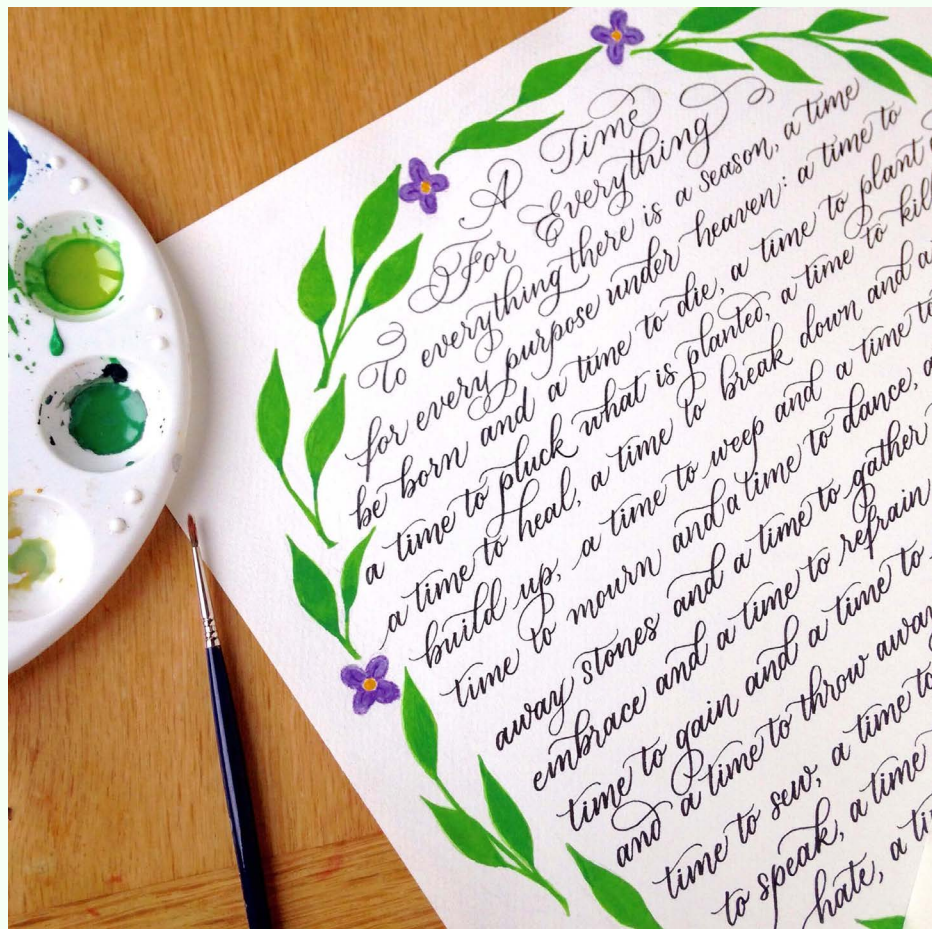 A Time
For Everything
To everything there is a season, a time
for every purpose under heaven: a time to
be born and a time to die, a time to plant
a time to pluck what is planted, a time to kill
a time to heal, a time to break down and a
build up, a time to weep and a time to
time to mourn and a time to dance, a
away stones and a time to gather
embrace and a time to refrain
time to gain and a time to
and a time to throw away
time to sew, a time to
to speak, a time
hate, a